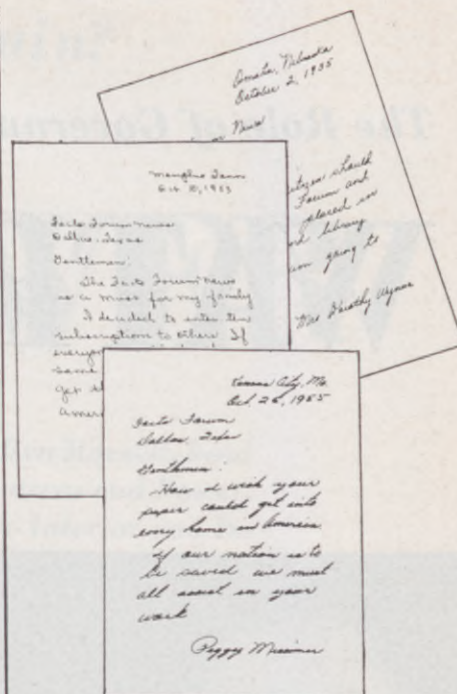 Omaha, Nebraska
October 2, 1955
News
citizen should
Forum and
placed in
library
am going to
Mrs Dorothy
Memphis Tenn
Oct 10, 1955
Facts Forum News
Dallas, Texas
Gentlemen:
The Facts Forum News
is a must for my family
I decided to enter ten
subscriptions to others If
everyone
same
get
Ameri
Kansas City, Mo.
Oct. 26, 1955
Facts Forum
Dallas, Texas
Gentlemen:
How I wish your
paper could get into
every home in America
if our nation is to
be saved we must
all assist in your
work
Peggy Missimer